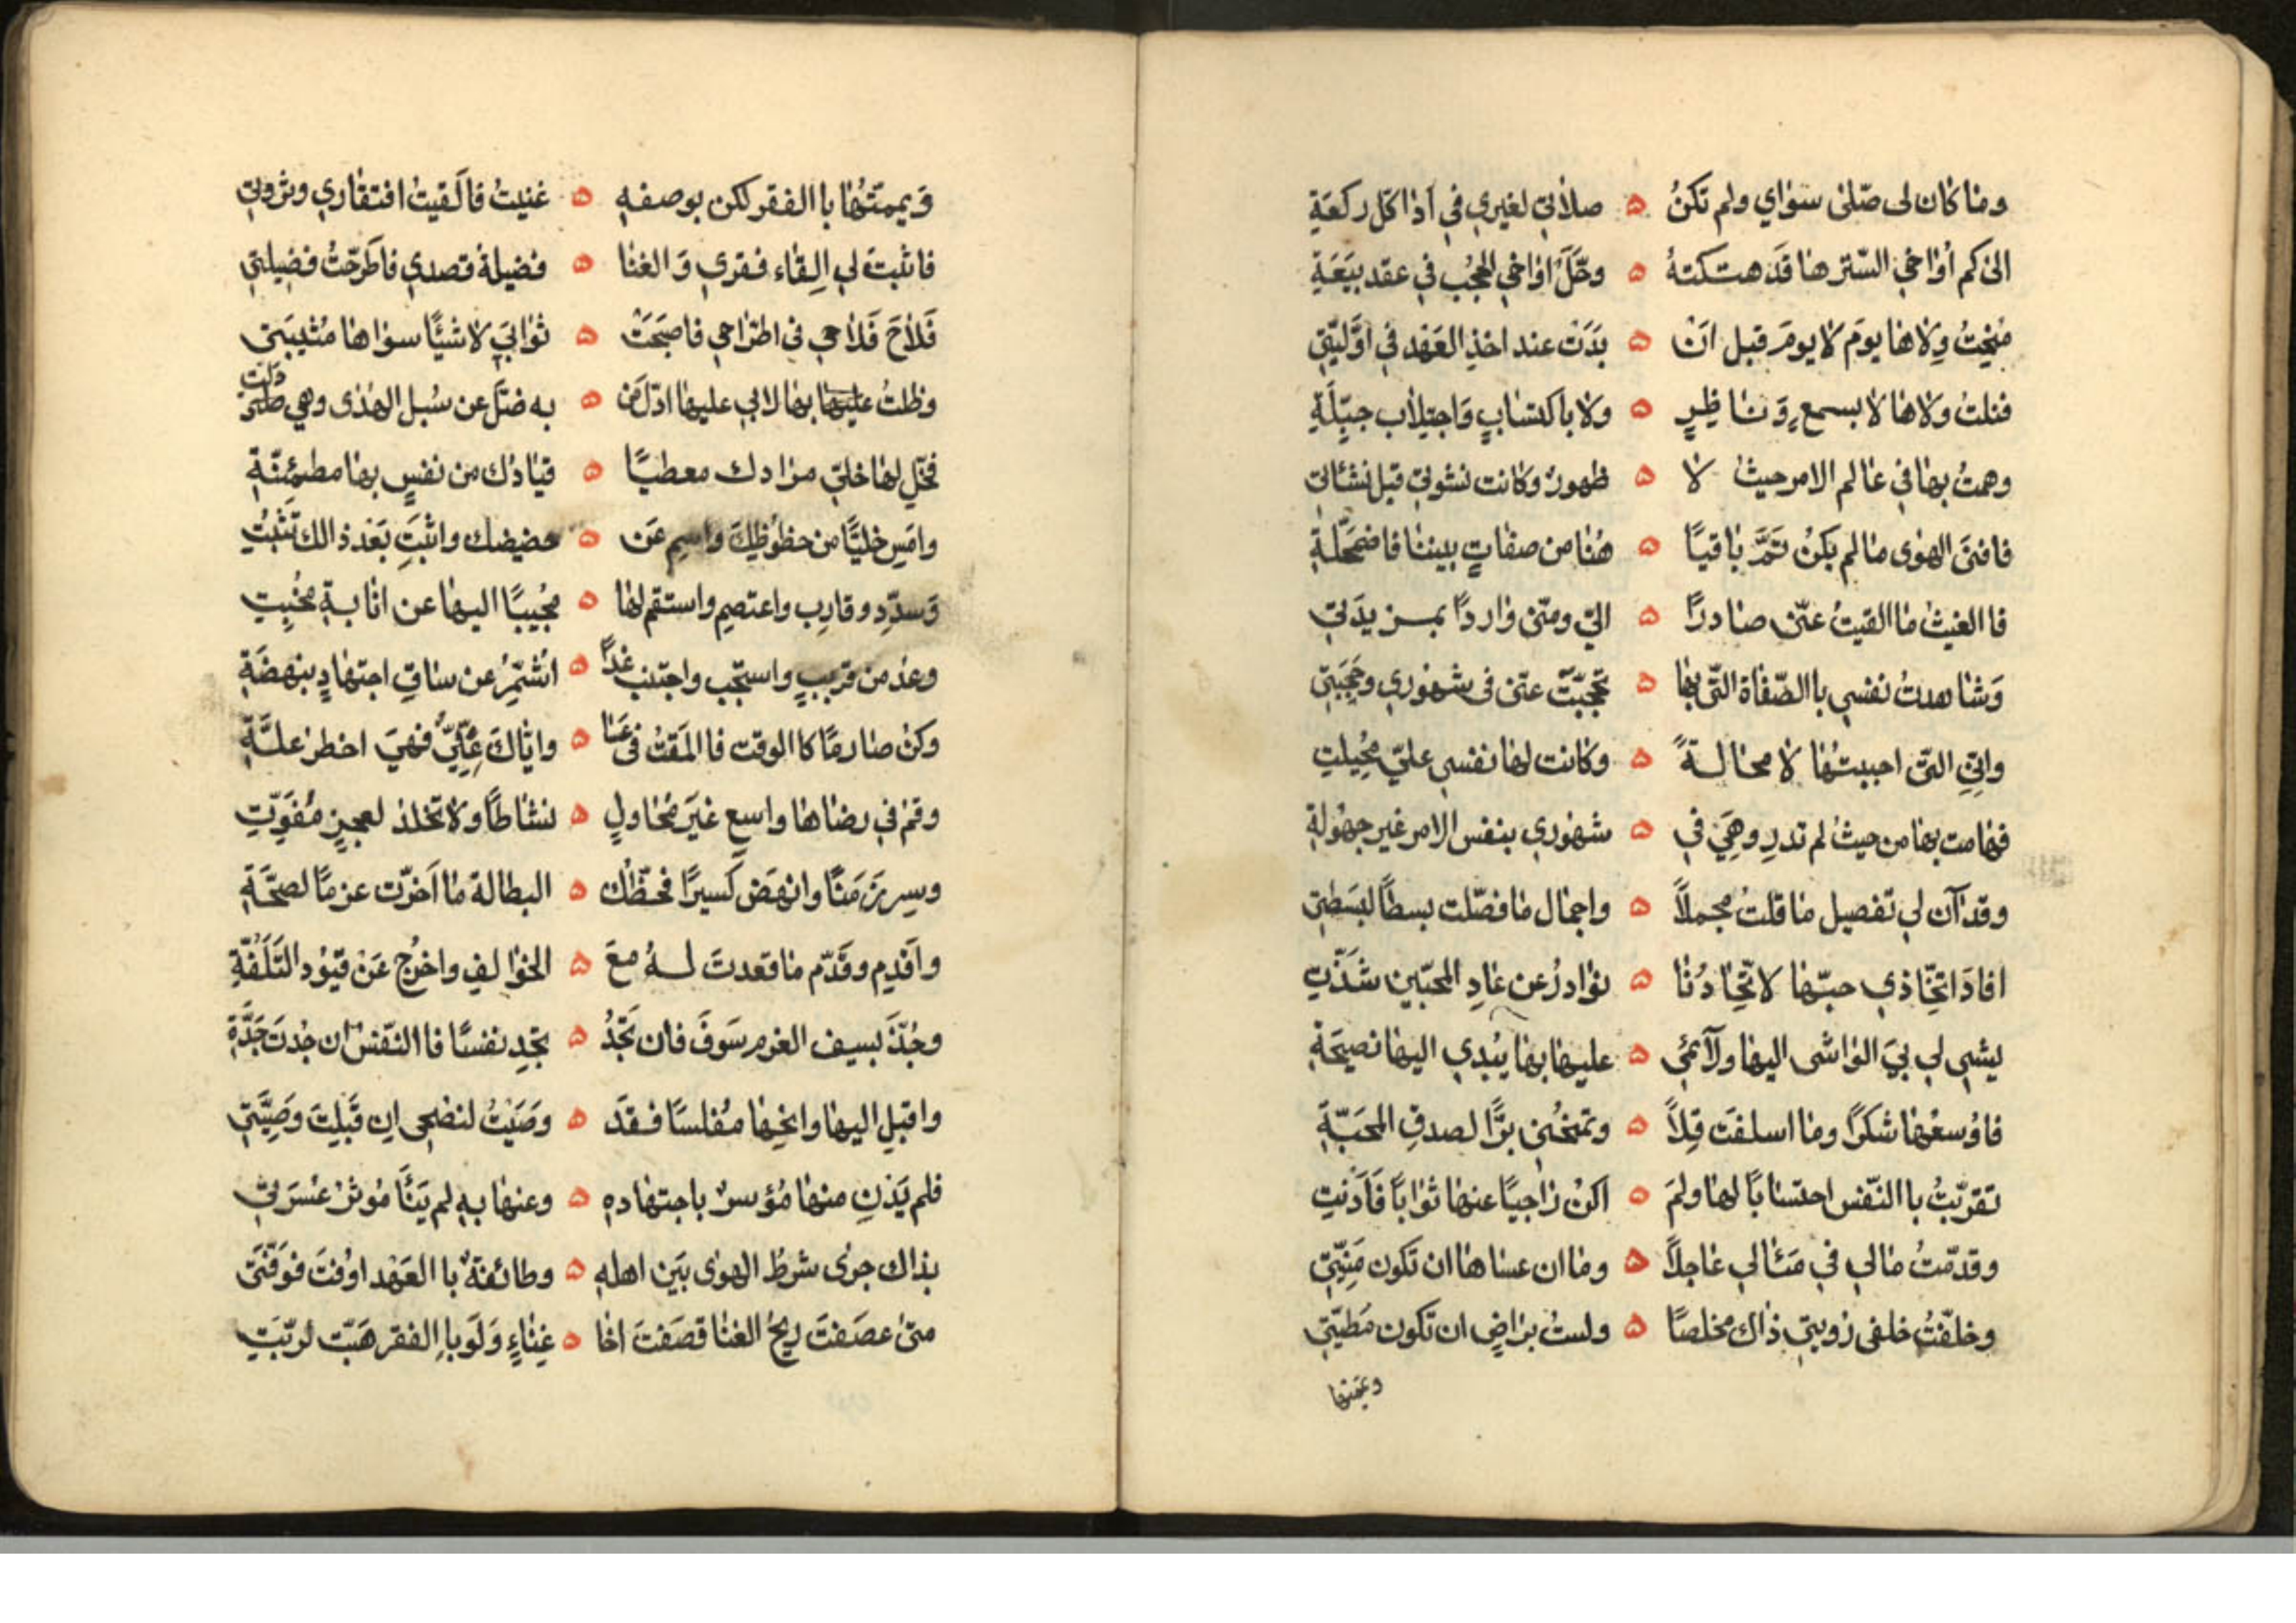 وما كان لى صلى سواي ولم تكن ۵ صلاتي لغيري في اذا كل ركعة
الى كم أواخي الستر ها قد هتكته ۵ وحل اواخي الحجب في عقد بيعة
منحت ولاها يوم لا يوم قبل ان ۵ بدت عند اخذ العهد في اوليتي
فنلت ولاها لا بسمع وناظر ۵ ولا باكتساب واجتلاب جبلة
وهمت بها في عالم الامر حيث لا ۵ ظهور وكانت نشوتي قبل نشاتي
فافنى الهوى ما لم يكن ثم باقيا ۵ هنا من صفات بيننا فاضمحلة
فاالفيت ماالقيت عنى صادرا ۵ الي ومنى واردا بمزيدتي
وشاهدت نفسي باالصفاة التى بها ۵ تحجبت عنى فى شهوري وحجبتي
واني التى احببتها لا محالة ۵ وكانت لها نفسي علي محيلت
فهامت بها من حيث لم تدر وهي في ۵ شهوري بنفس الامر غير جهولة
وقد آن لي تفصيل ما قلت مجملا ۵ واجمال ما فصلت بسطا لبسطتي
افاد اتخاذي حبها لاتحادنا ۵ نوادر عن عاد المحبين شذت
يشى لي بي الواشى اليها ولائمي ۵ عليها بها يبدي اليها نصيحة
فاوسعها شكرا وما اسلفت قلا ۵ وتمنحني برا لصدق المحبة
تقربت باالنفس احتسابا لها ولم ۵ اكن راجيا عنها ثوابا فادنت
وقدمت مالي في مئالي عاجلا ۵ وما ان عساها ان تكون منيتي
وخلفت خلفى رويتي ذاك مخلصا ۵ ولست براض ان تكون مطيتي
ويممتها
ويممتها باالفقر لكن بوصفه ۵ غنيت فالقيت افتقاري وثروتي
فاثبت لي القاء فقري والغنا ۵ فضيلة قصدي فاطرحت فضيلتي
فلاح فلاحي فى اطراحي فاصبحت ۵ ثوابي لا شيئا سواها مثيبتى
وظلت عليها بها لابي عليها ادل من ۵ به ضل عن سبل الهدى وهي دلت
فخل لها خلي مرادك معطيا ۵ قيادك من نفس بها مطمئنة
وامس خليا من حظوظك واسم عن ۵ حضيضك واثبت بعد ذالك تثبت
وسدد وقارب واعتصم واستقم لها ۵ مجيبا اليها عن انابة مخبت
وعد من قريب واستجب واجتنب غدا ۵ اشمر عن ساق اجتهاد بنهضة
وكن صارما كاالوقت فاالمقت فى عسا ۵ واياك علي فهي اخطر علة
وقم في رضاها واسع غير محاول ۵ نشاطا ولا تخلد لعجز مفوت
وسر زمنا وانهض كسيرا فحظك ۵ البطالة ما اخرت عزما لصحة
واقدم وقدم ما قعدت له مع ۵ الخوالف واخرج عن قيود التلفة
وجذ بسيف العزم سوف فان تجد ۵ تجد نفسا فاالنفس ان جدت جدة
واقبل اليها وانحها مفلسا فقد ۵ وصيت لنصحى ان قبلت وصيتي
فلم يدن منها مؤسر باجتهاده ۵ وعنها به لم ينأ موثر عسرتي
بذاك جرى شرط الهوى بين اهله ۵ وطائفة باالعهد اوفت فوفتى
متى عصفت ريح الغنا قصفت اخا ۵ غناء ولو باالفقر هبت لربت